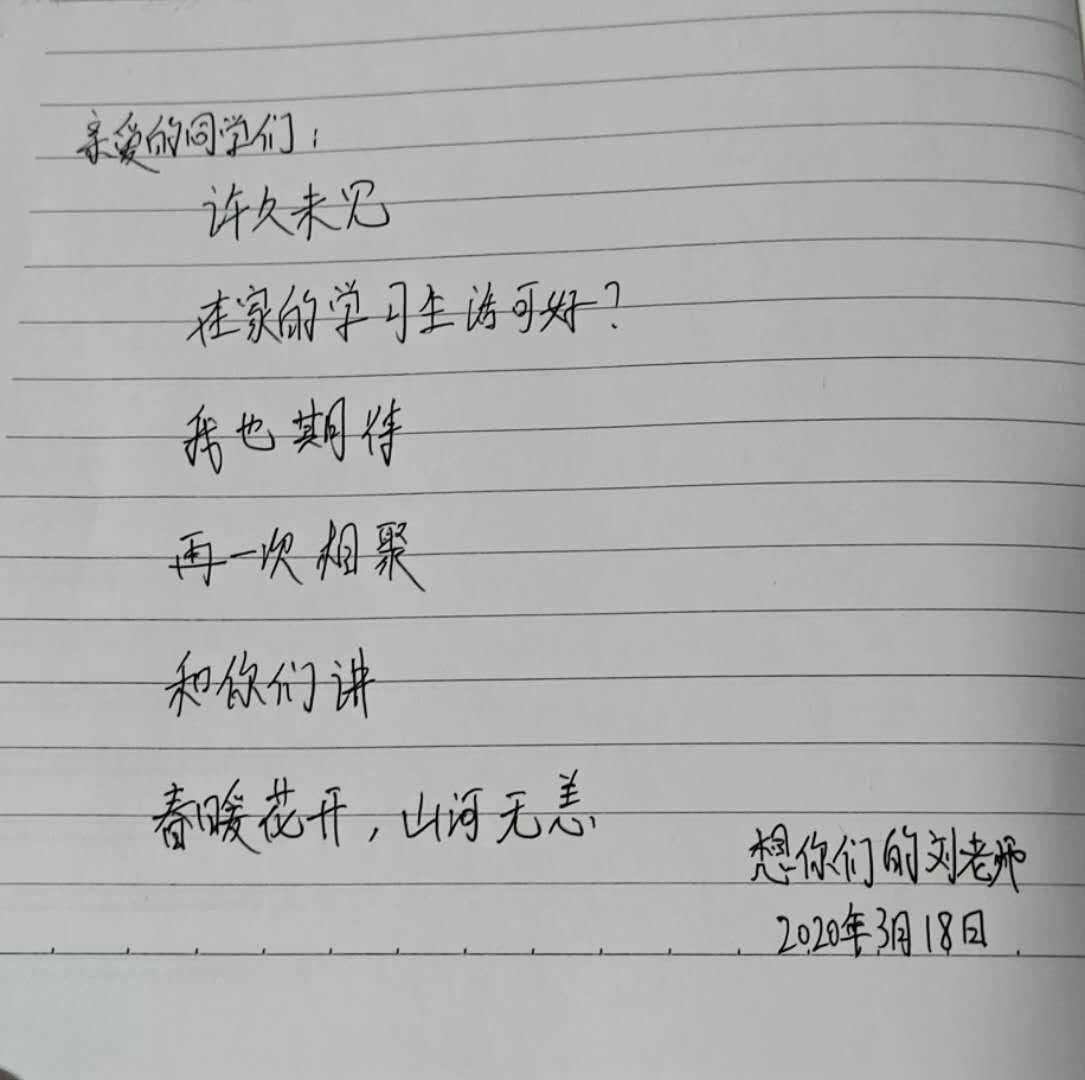 亲爱的同学们：
许久未见
在家的学习生活可好？
我也期待
再一次相聚
和你们讲
春暖花开，山河无恙
想你们的刘老师
2020年3月18日